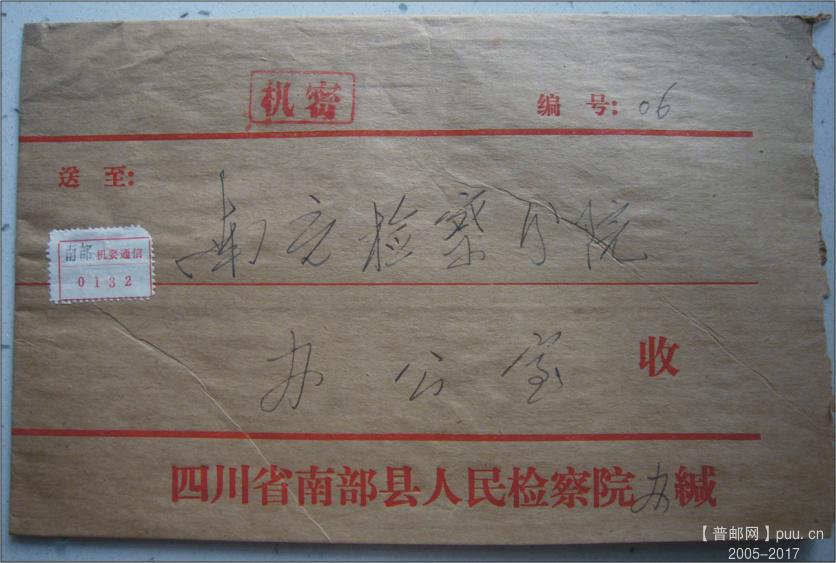 机密
编 号: 06
送 至:
南充检察分院
南部 机要通信
0132
办公室 收
四川省南部县人民检察院办缄
【普邮网】puu.cn
2005-2017